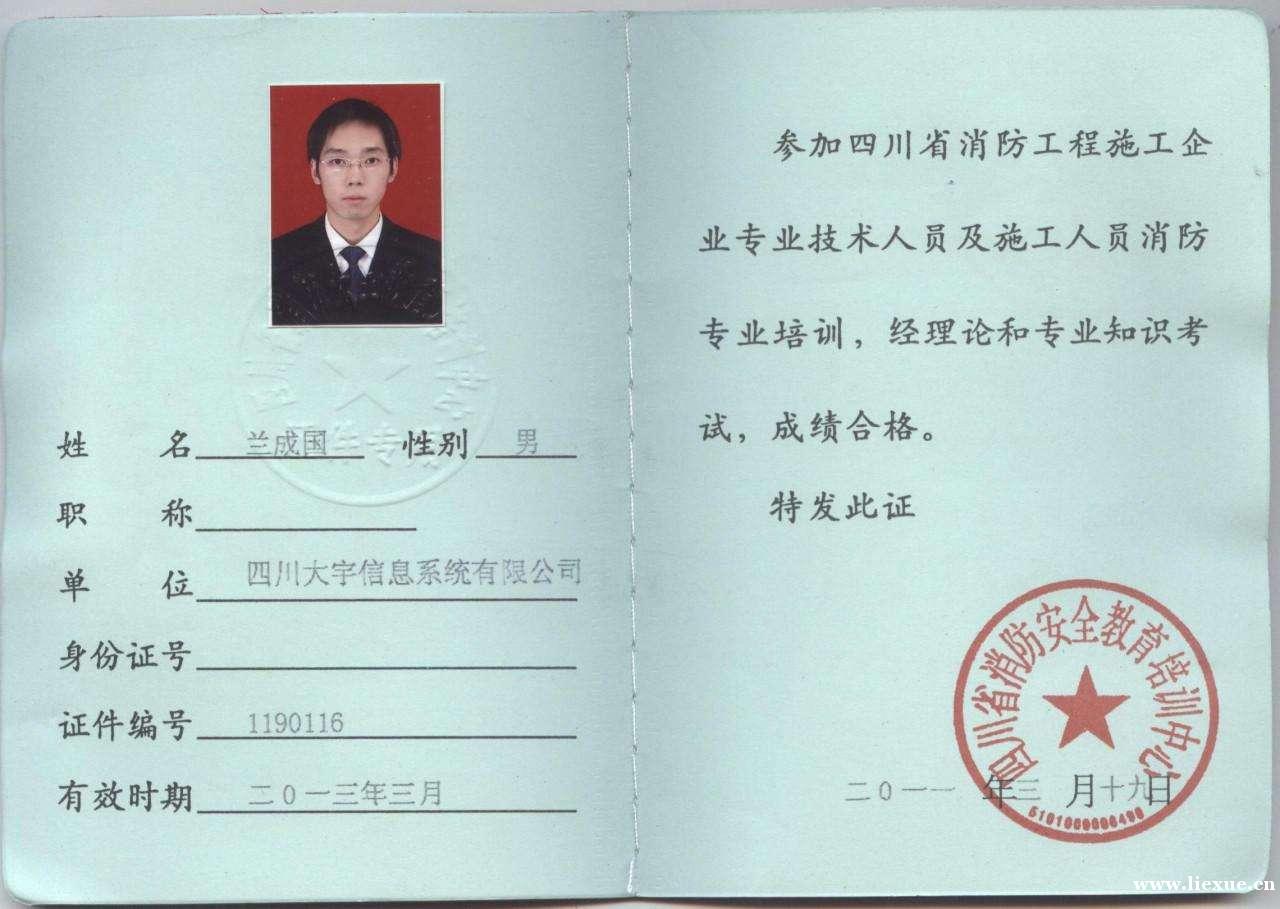 姓名 兰成国 性别 男
职称
单位 四川大宇信息系统有限公司
身份证号
证件编号 1190116
有效时期 二0一三年三月
参加四川省消防工程施工企
业专业技术人员及施工人员消防
专业培训，经理论和专业知识考
试，成绩合格。
特发此证
四川省消防安全教育培训中心
二0一一年三月十九日
www.liexue.cn